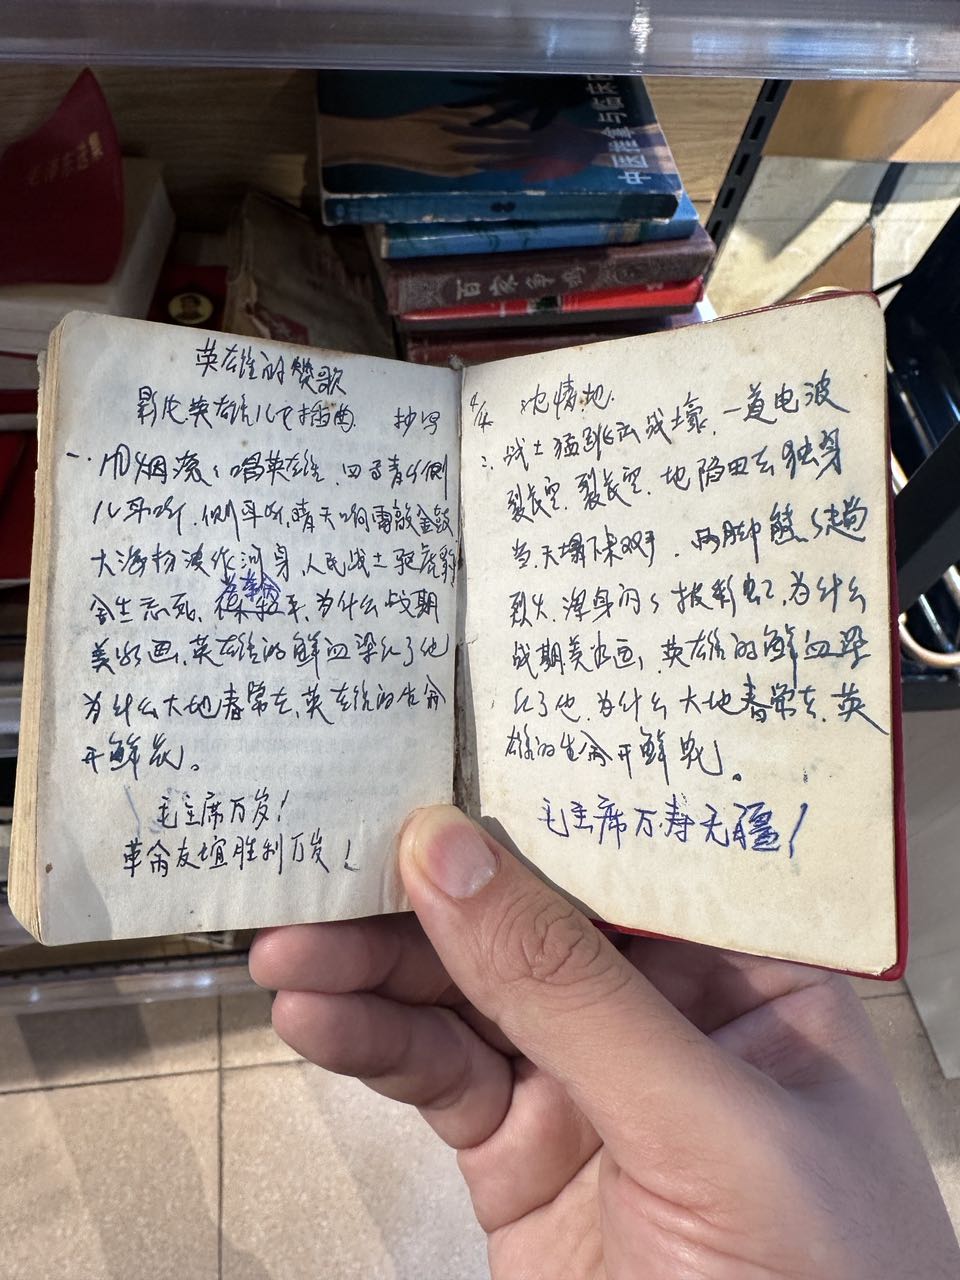 中医推拿与临床
百家争鸣
英雄的赞歌
影片英雄儿女插曲 抄写
一. 烟滚滚唱英雄 四百青山侧
儿耳听 侧耳听 晴天响雷敲金鼓
大海扬波作河身 人民战士驱虎豹
舍生忘死 为什么战期
美如画 英雄的鲜血染红了他
为什么大地春常在 英雄的生命
开鲜花。
毛主席万岁!
革命友谊胜利万岁!
4/4 沈情地.
二. 战士猛跳出战壕 一道电波
裂长空 裂长空 地陷田去独身
当 天塌下来双手 两脚熊熊趟
烈火 浑身闪闪披彩虹 为什么
战期美如画 英雄的鲜血染
红了他 为什么大地春常在 英
雄的生命开鲜花。
毛主席万寿无疆!